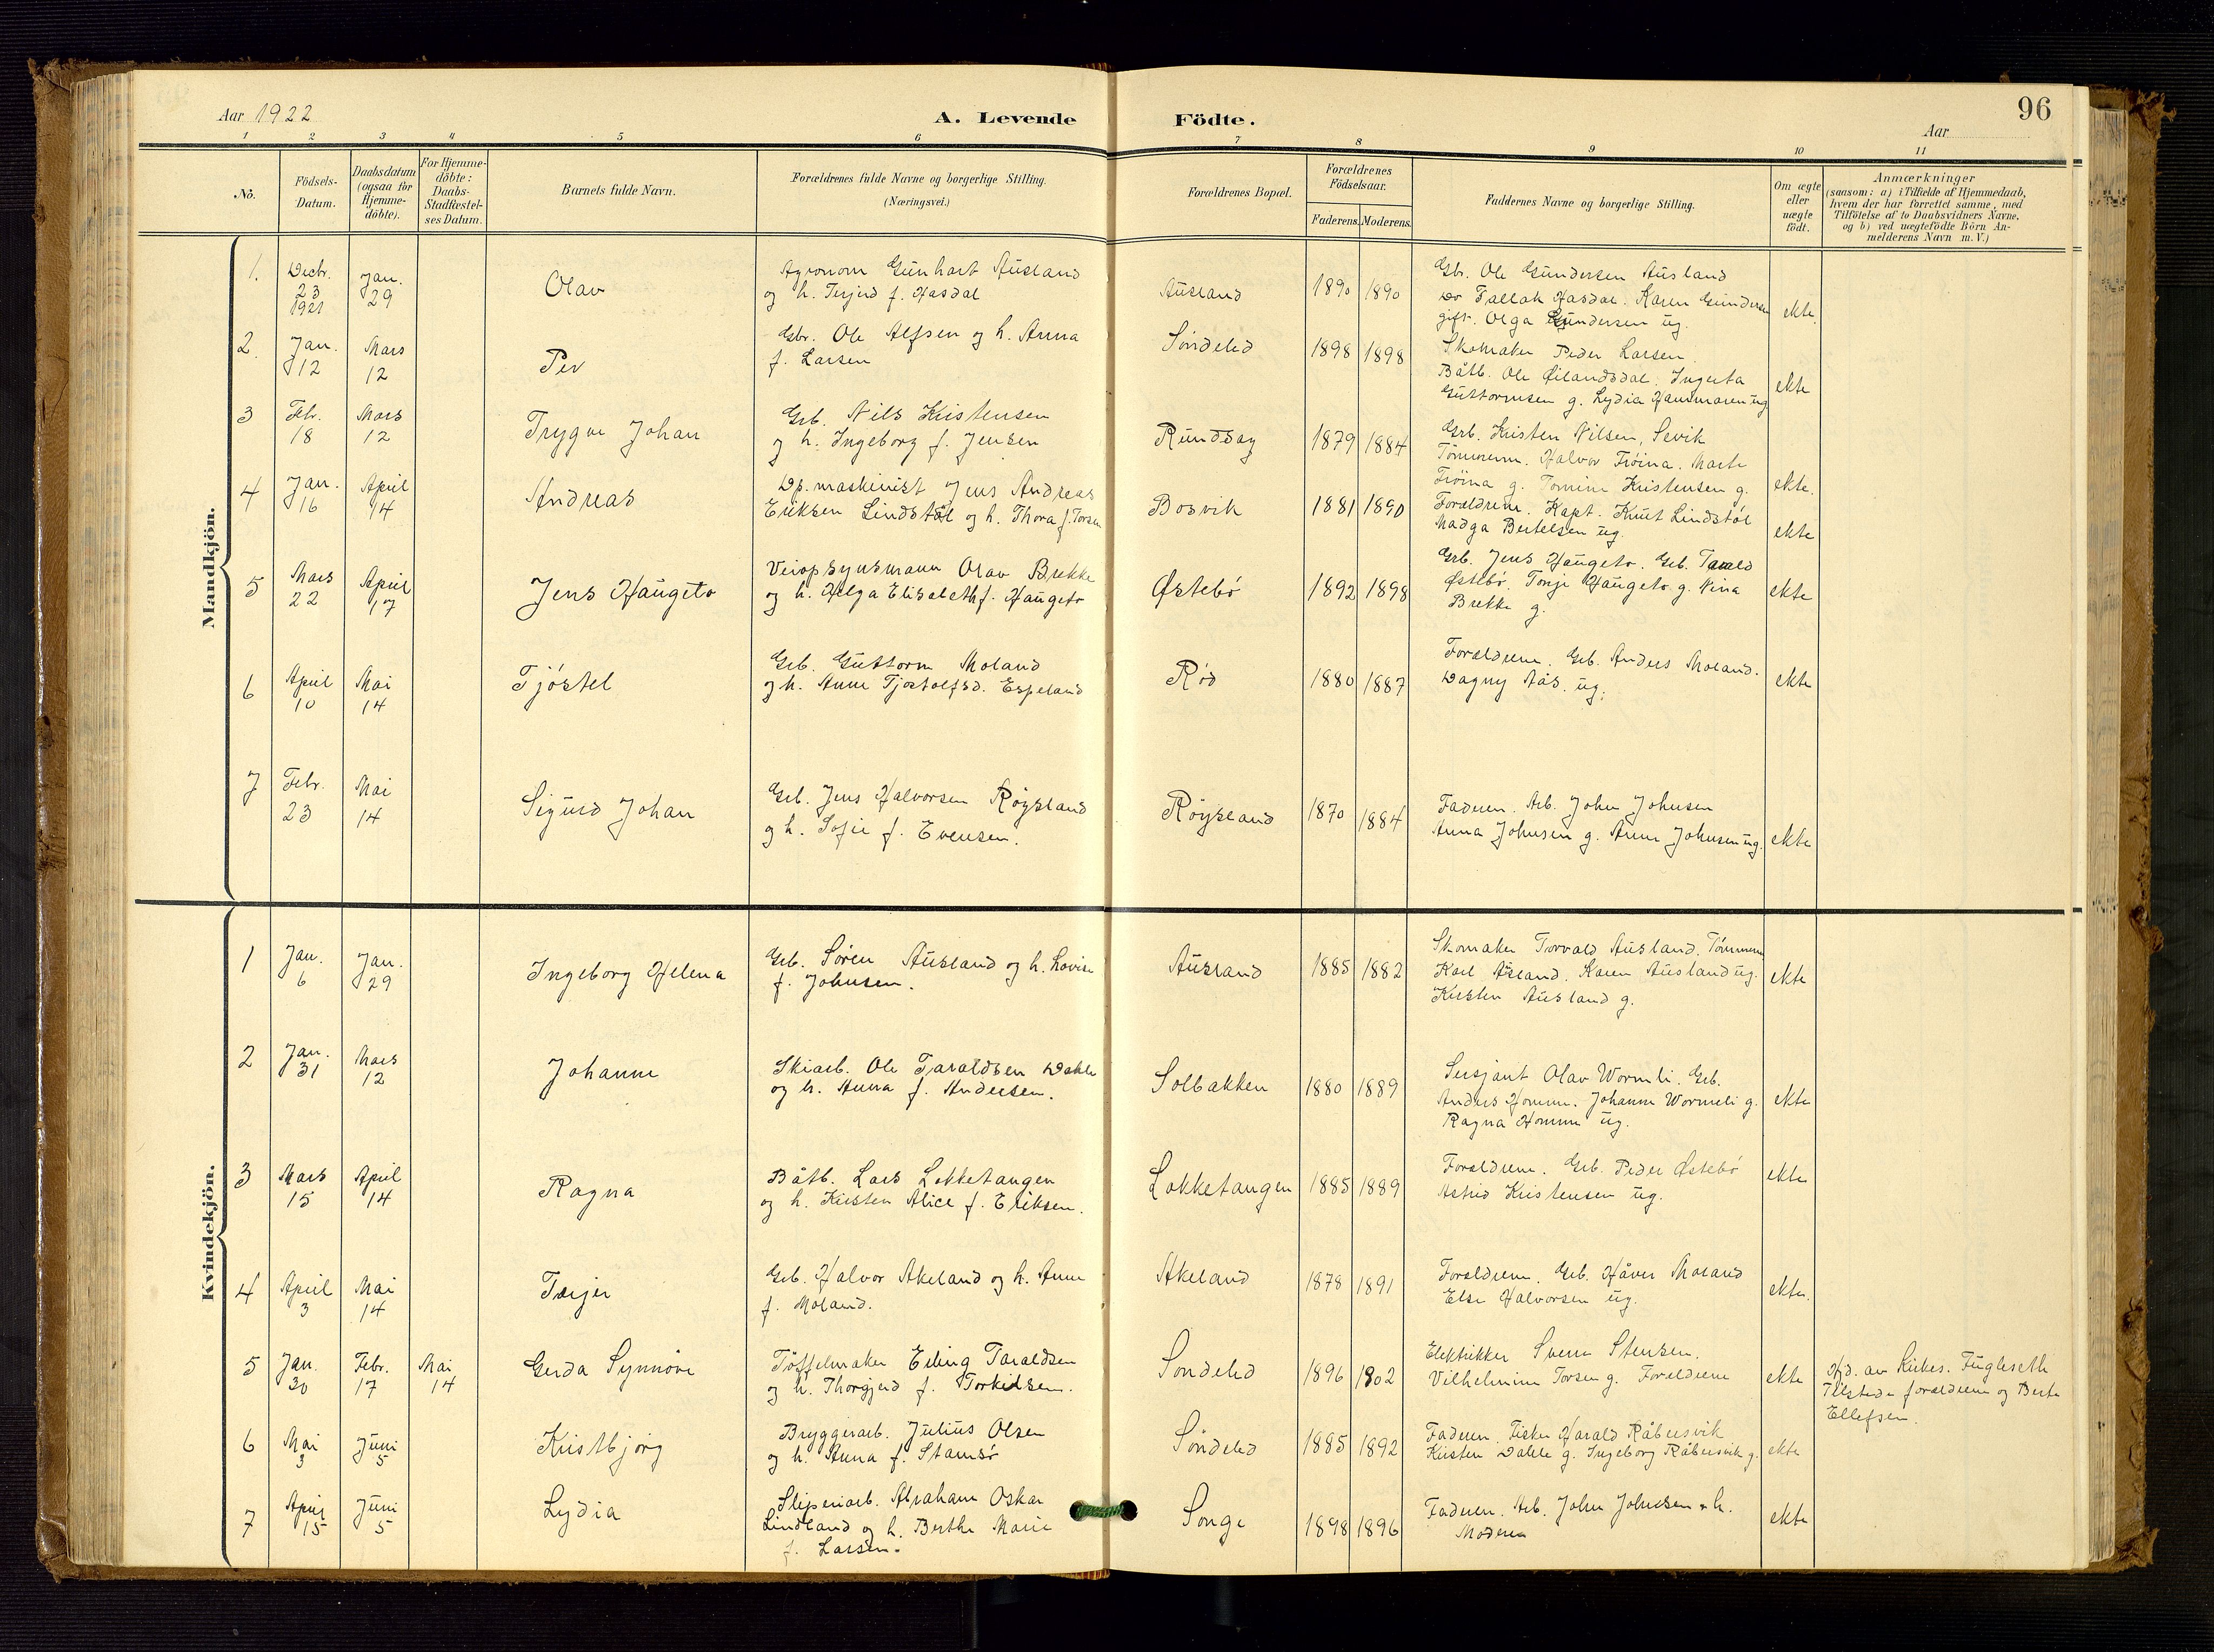 96
Aar 1922
A. Levende Födte.
Aar
1 2 3 4 5 6 7 8 9 10 11
No.
Födsels-
Datum.
Daabsdatum
(ogsaa for
Hjemme-
döbte).
For Hjemme-
döbte:
Daabs-
Stadfæstel-
ses Datum.
Barnets fulde Navn.
Forældrenes fulde Navne og borgerlige Stilling.
(Næringsvei.)
Forældrenes Bopæl.
Forældrenes
Födselsaar.
Faderens. Moderens.
Faddernes Navne og borgerlige Stilling.
Om ægte
eller
uægte
födt.
Anmærkninger
(saasom: a) i Tilfælde af Hjemmedaab,
hvem der har forrettet samme, med
Tilföielse af to Daabsvidners Navne,
og b) ved uægtefödte Börn An-
melderens Navn m. V.)
Mandkjön.
1. Decbr. 23 1921
Jan. 29
Olav
Agronom Gunhart Ausland
og h. Terjerd f. Hasdal
Ausland
1890 1890
Gbr. Ole Gundersen Ausland
Do Tallak Hasdal. Karen Gundersen
gift. Olga Gundersen ug.
ekte.
2. Jan. 12
Mars 12
Per
Gbr. Ole Alfsen og h. Anna
f. Larsen
Söndeled
1898 1898
Skomaker Peder Larsen.
Båtb. Ole Øilandsdal. Ingerta
Guttormsen g. Lydia Hammaren ug
ekte
3 Feb. 18
Mars 12
Trygve Johan
Grb. Nils Kristensen
og h. Ingeborg f. Jensen
Rundsag
1879 1884
Grb. Kristen Nilsen, Sevik
Tömmerm. Halvor Fröina. Marte
Fröina g. Tomine Kristensen g.
ekte.
4 Jan. 16
April 14
Andreas
Dp. maskinist Jens Andreas
Eriksen Lindstöl og h. Thora f. Torsen
Bosvik
1881 1890
Foreldrene. Kapt. Knut Lindstöl
Madga Bertelsen ug.
ekte
5 Mars 22
April 17
Jens Haugeto
Veiopsynsmann Olav Brekke
og h. Helga Elisabeth f. Haugeto
Østebö
1892 1898
Grb. Jens Haugeto. Grb. Tarald
Østebö. Tonje Haugeto g. Nina
Brekke g.
ekte
6 April 10
Mai 14
Tjöstel
Grb. Guttorm Moland
og h. Anne Tjostolfsd. Espeland
Röd
1880 1887
Foreldrene. Grb. Anders Moland.
Dagny Aas. ug.
ekte
7 Febr. 23
Mai 14
Sigurd Johan
Grb. Jens Halvorsen Röysland
og h. Sofie f. Evensen.
Röysland
1870 1884
Faderen. Arb. John Johnsen
Anna Johnsen g. Anne Johnsen ug.
ekte
Kvindekjön.
1 Jan. 6
Jan. 29
Ingeborg Helena
Grb. Sören Ausland og h. Lovise
f. Johnsen.
Ausland
1885 1882
Skomaker Torvald Ausland. Tömmerm
Karl Ausland. Karen Ausland ug.
Kirsten Ausland g.
ekte
2 Jan. 31
Mars 12
Johanne
Skiarb. Ole Taraldsen Dahle
og h. Anna f. Andersen.
Solbakken
1880 1889
Sersjant Olav Wormli. Grb.
Anders Homme. Johanne Wormeli g.
Ragna Homme ug.
ekte
3 Mars 15
April 14
Ragna
Båtb. Lars Lokketangen
og h. Kirsten Alice f. Eriksen.
Lokketangen
1885 1889
Foreldrene. Grb. Peder Østebö
Astrid Kristensen ug.
ekte
4 April 3
Mai 14
Terjer
Grb. Halvor Akeland og h. Anne
f. Moland.
Akeland
1878 1891
Foreldrene. Grb. Håver Moland
Else Halvorsen ug.
ekte.
5 Jan. 30
Febr. 17
Mai 14
Gerda Synnöve
Töffelmaker Erling Taraldsen
og h. Thorgjerd f. Torkildsen.
Söndeled
1896 1902
Elektrikker Svenn Stensen.
Vilhelmine Torsen g. Foreldrene
ekte
Hjd. av Kirkes. Fugleseth
Tilstede foreldrene og Berte
Ellefsen.
6 Mai 3
Juni 5
Kristbjörg
Bryggerarb. Julius Olsen
og h. Anna f. Stamsö
Söndeled
1885 1892
Faderen. Fisker Harald Råbersvik
Kirsten Dahle g. Ingeborg Råbersvik g.
ekte
7 April 15
Juni 5
Lydia
Sliperiarb. Abraham Oskar
Lindland og h. Berthe Marie
f. Larsen.
Songe
1898 1896
Faderen. Arb. John Johnsen & h.
Moderen
ekte